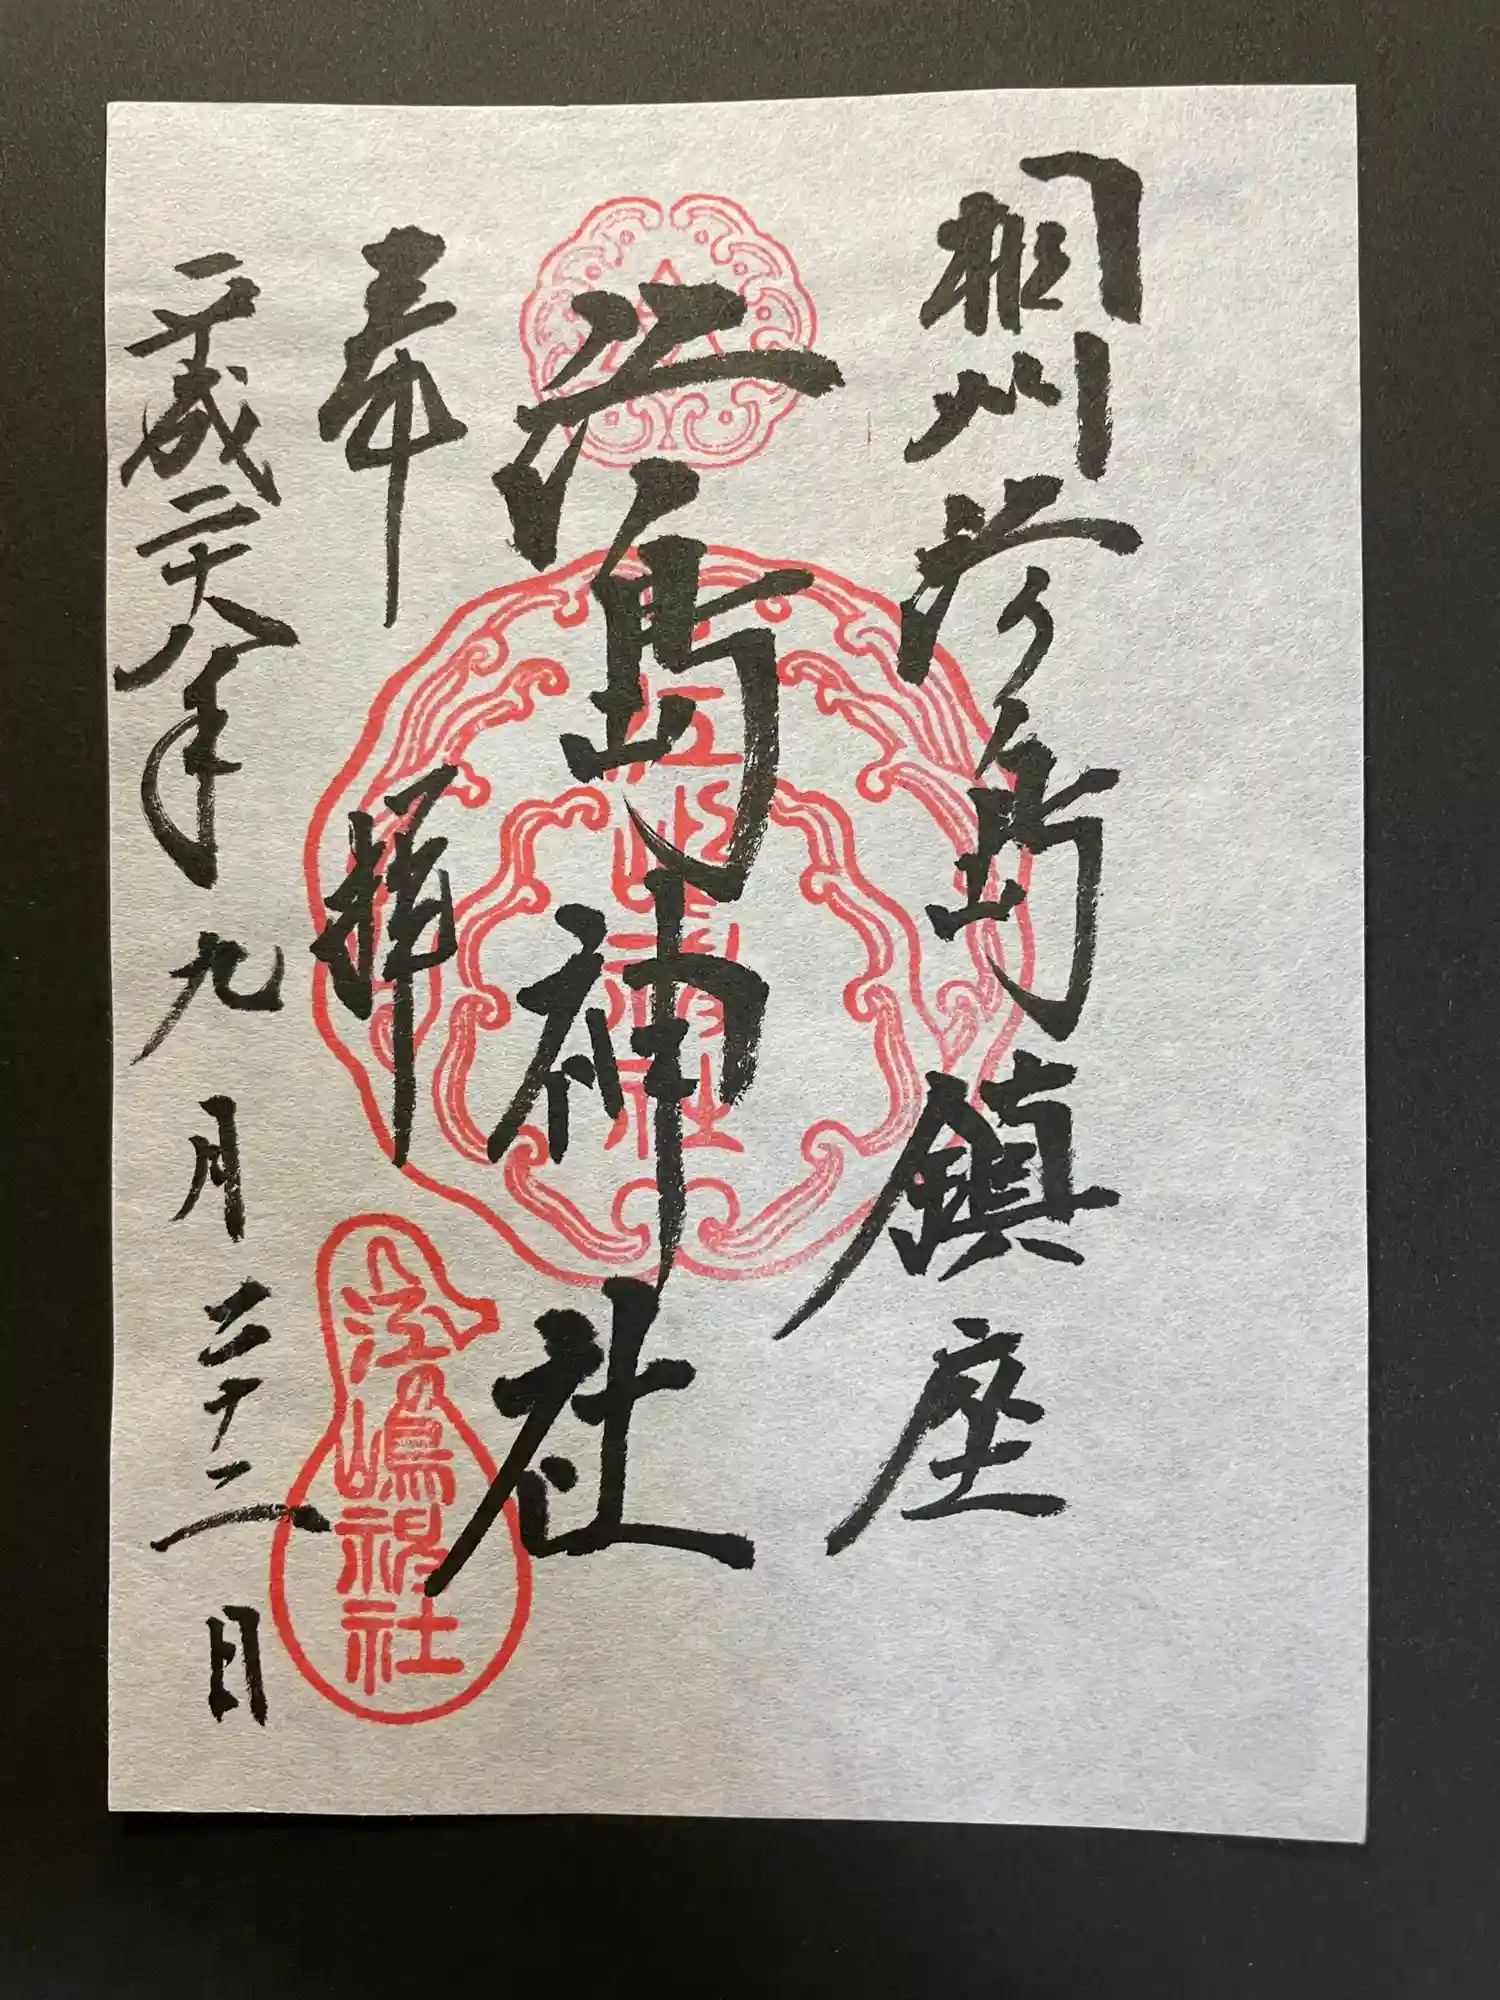 相州江の島鎮座
江島神社
奉拝
平成二十八年九月二十二日
江嶋神社
江の嶋神社